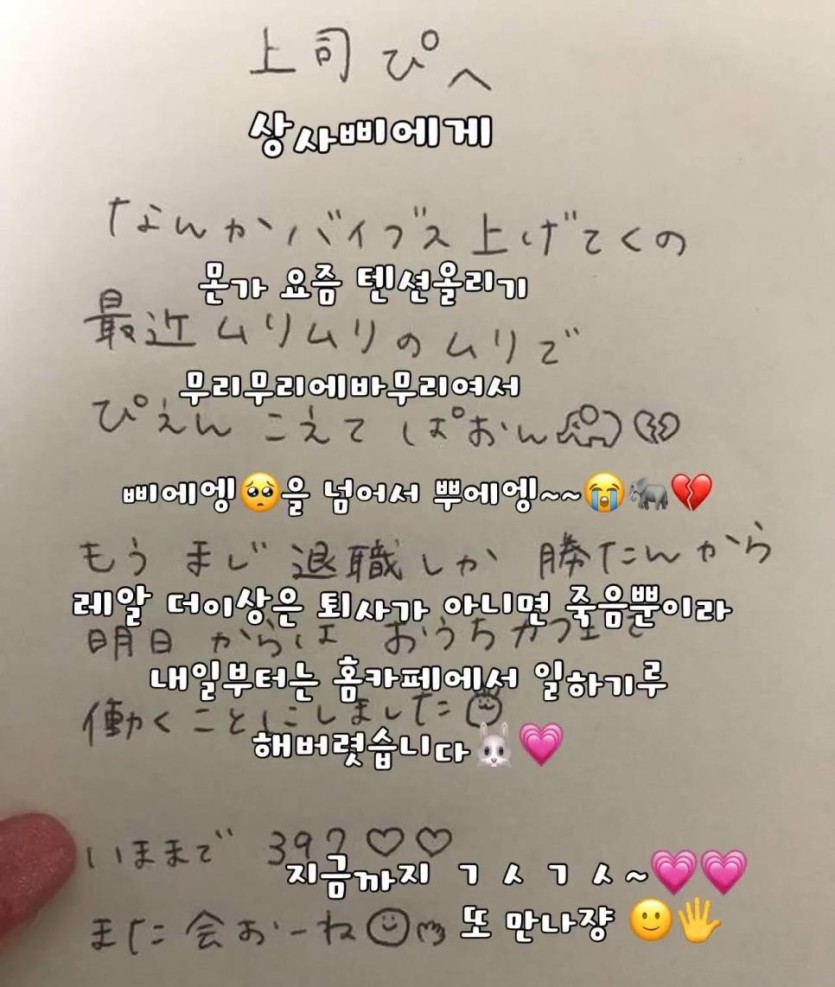 上司ぴへ
상사삐에게
なんかバイブス上げてくの
몬가 요즘 텐션올리기
最近ムリムリのムリで
무리무리에바무리여서
ぴえんこえてぱおん
삐에엥🥺을 넘어서 뿌에엥~~😭🐘💔
もう まじ 退職しか 勝たんから
레알 더이상은 퇴사가 아니면 죽음뿐이라
明日 からは おうちカフェで
내일부터는 홈카페에서 일하기루
働くことにしました
해버렷습니다🐰💗
いままで 39?♡♡
지금까지 ㄱㅅㄱㅅ~💗💗
また会おーね
또 만나쟝 🙂🖐